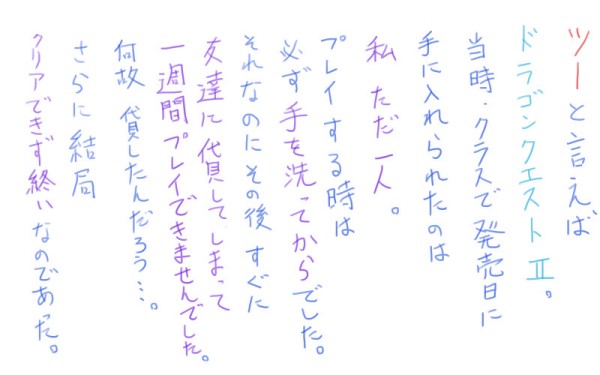 ツーと言えば
ドラゴンクエストⅡ。
当時・クラスで発売日に
手に入れられたのは
私 ただ一人。
プレイする時は
必ず手を洗ってからでした。
それなのにその後 すぐに
友達に貸してしまって
一週間プレイできませんでした。
何故 貸したんだろう…。
さらに結局
クリアできず終いなのであった。